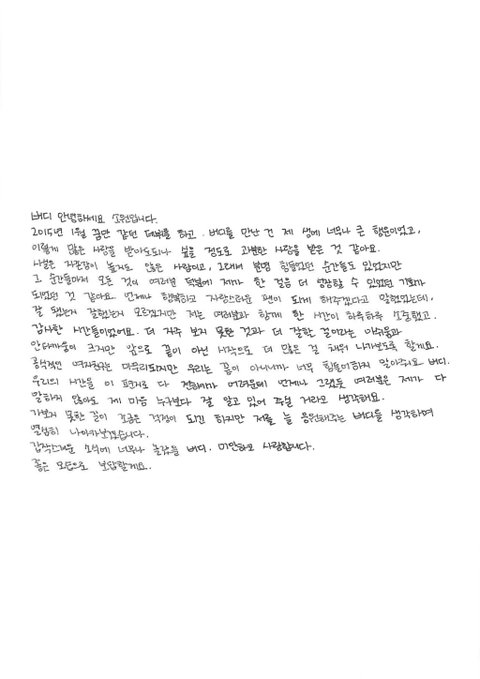 버디 안녕하세요 소원입니다.
2015년 1월 꿈만 같던 데뷔를 하고. 버디를 만난 건 제 생에 너무나 큰 행운이었고,
이렇게 많은 사랑을 받아도되나 싶을 정도로 과분한 사람을 받은 것 같아요.
사실은 자존감이 높지도 않은 사람이고, 그래서 분명 힘들었던 순간들도 있었지만
그 순간들마저 모든 것이 여러분 덕분에 제가 한 걸음 더 성장할 수 있었던 기회가
되었던 것 같아요. 언제나 행복하고 자랑스러운 팬이 되게 해주겠다고 말했었는데,
잘 됐는지 잘했는지 모르겠지만 저는 여러분과 함께 한 시간이 하루하루 소중했고.
감사한 시간들이었어요. 더 자주 보지 못한 것과 더 잘할 걸이라는 아쉬움과
안타까움이 크지만 앞으로 끝이 아닌 시작으로 더 많은 걸 채워 나가보도록 할게요.
공식적인 여자친구는 마무리되지만 우리는 끝이 아니니까 너무 힘들어하지 말아주어요 버디.
우리의 시간을 이 편지로 다 전하기 어려운데 언제나 그랬듯 여러분은 제가 다
말하지 않아도 제 마음 누구보다 잘 알고 있어 주실 거라고 생각해요.
가보지 못한 길이 조금은 걱정이 되긴 하지만 저를 늘 응원해주는 버디를 생각하며
열심히 나아가보겠습니다.
갑작스러운 소식에 너무나 놀랐을 버디. 미안하고 사랑합니다.
좋은 모습으로 보답할게요.